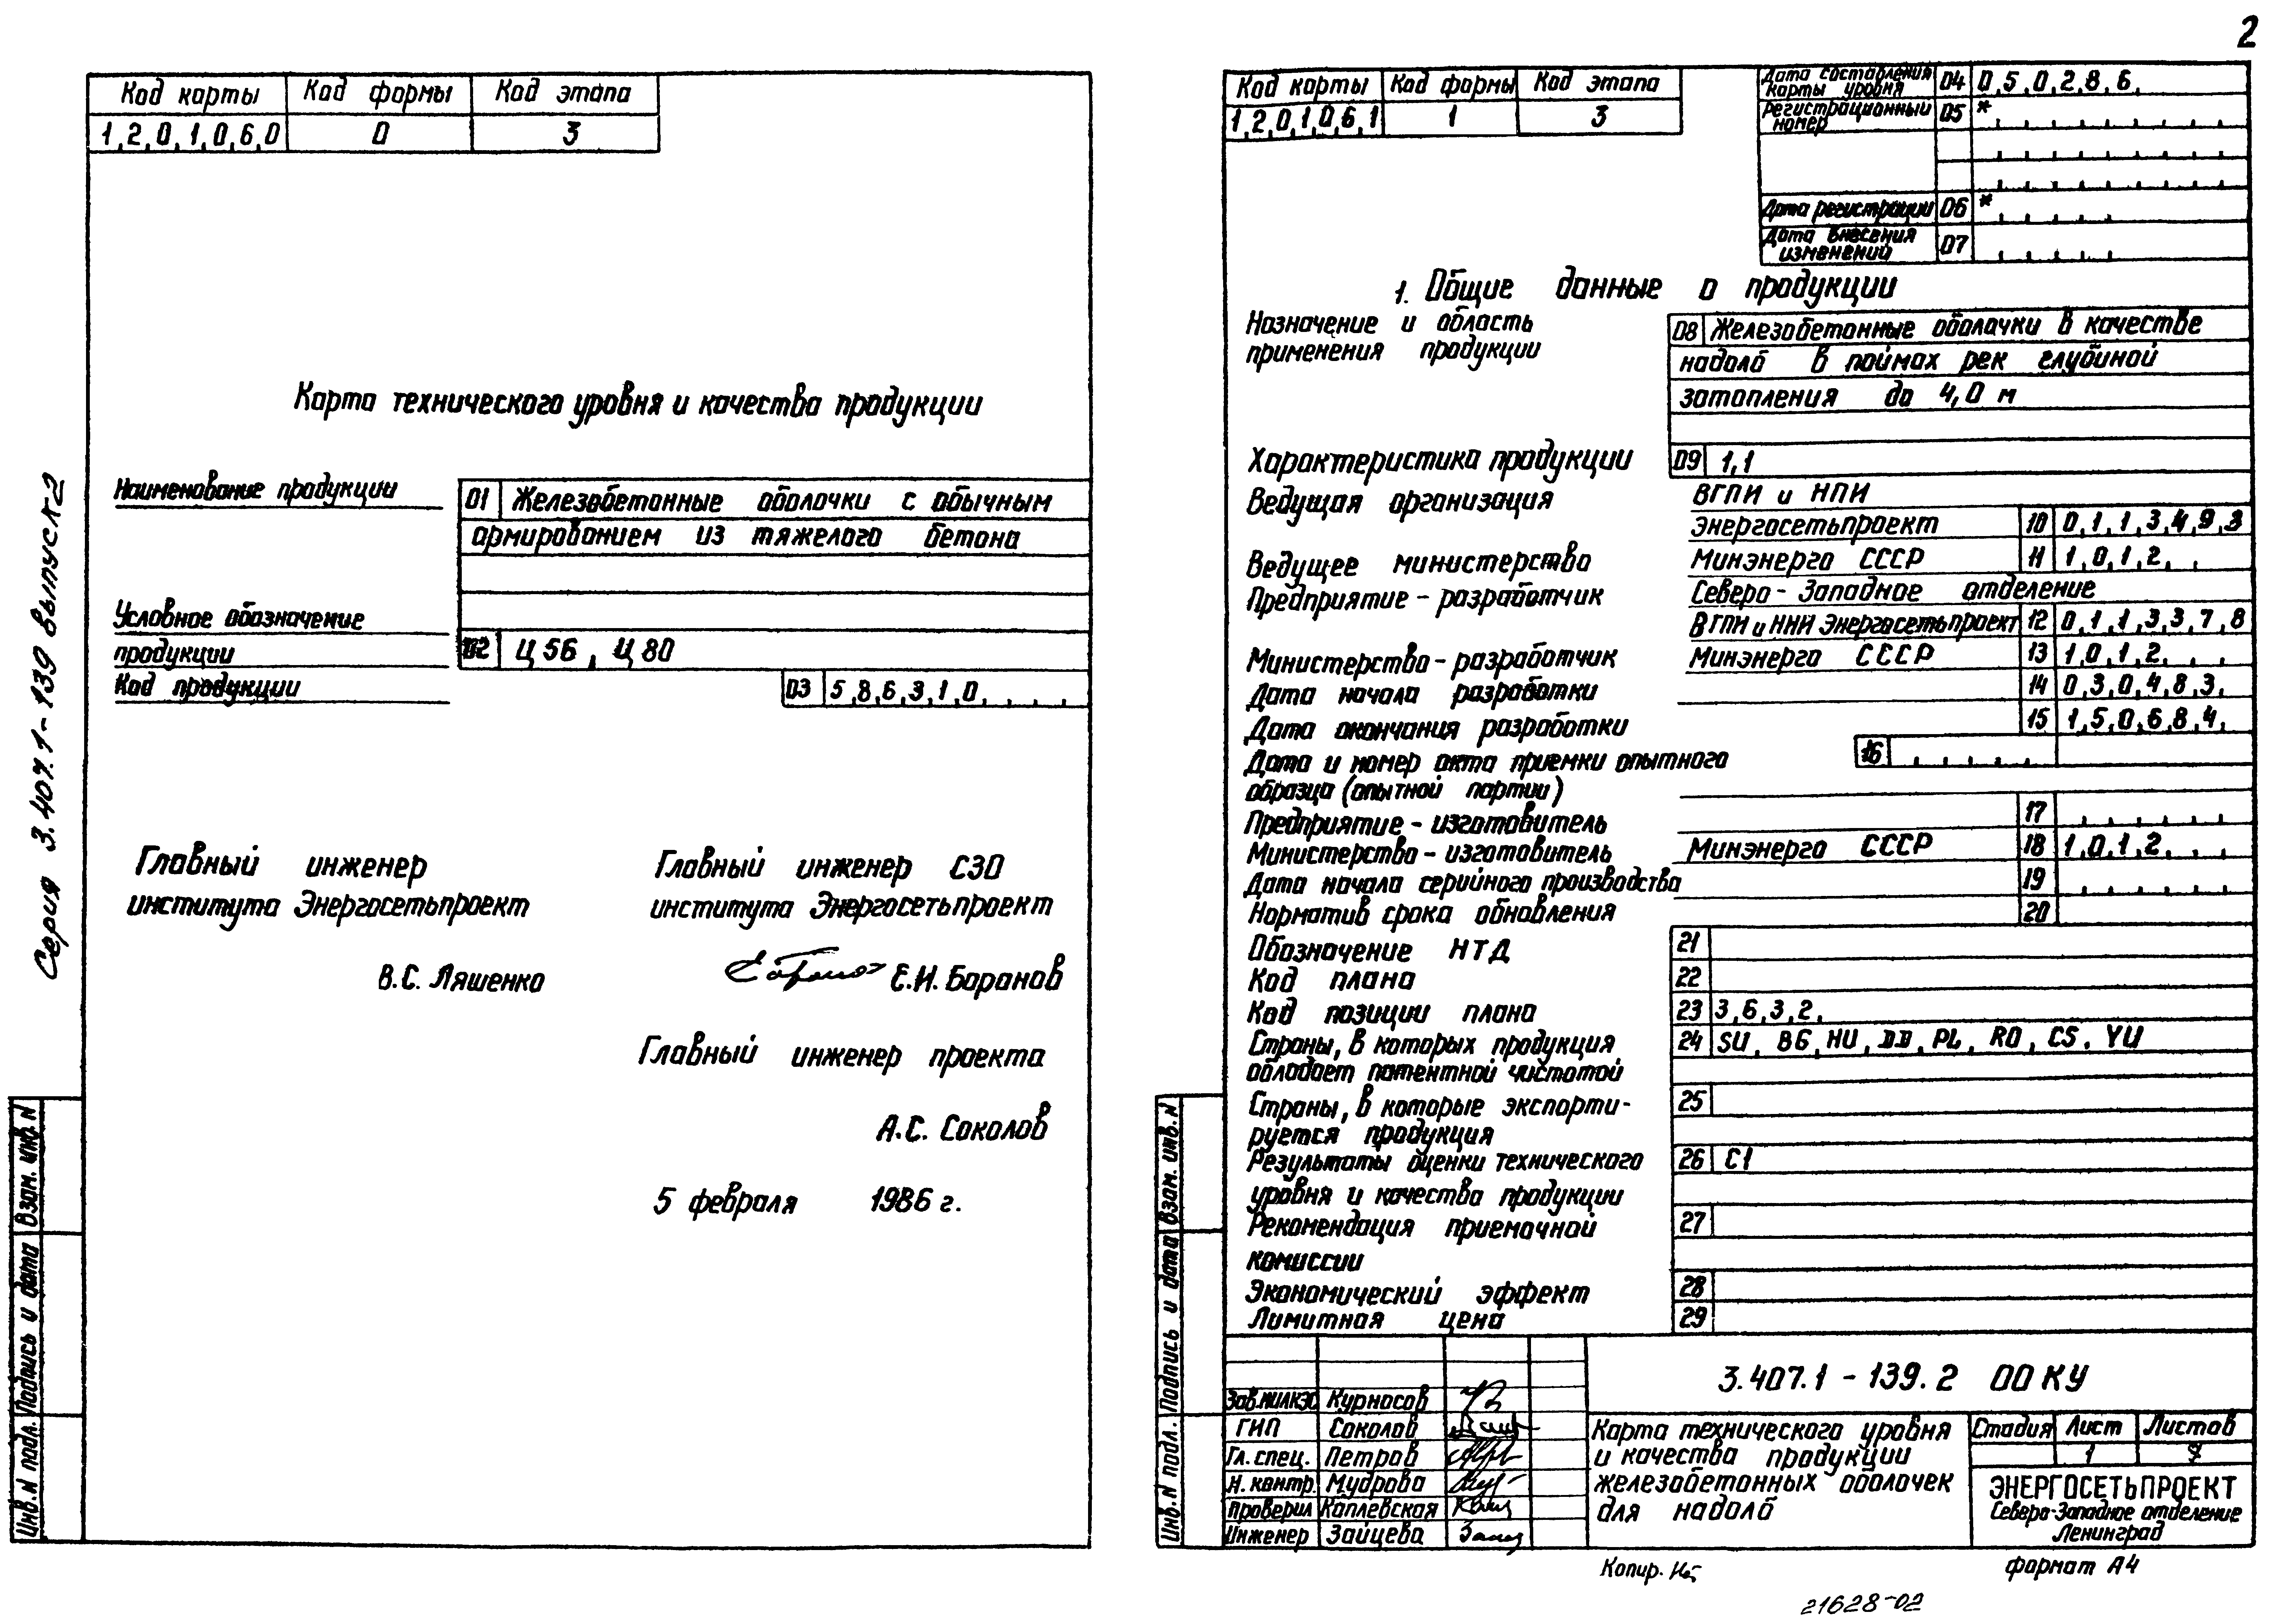 2
Код карты Код формы Код этапа
1,2,0,1,0,6,0 0 3
Карта технического уровня и качества продукции
Наименование продукции 01 Железобетонные оболочки с обычным
армированием из тяжелого бетона
Условное обозначение
продукции 02 Ц 56, Ц 80
Код продукции 03 5,8,6,3,1,0,
Главный инженер
института Энергосетьпроект
В.С. Ляшенко
Главный инженер СЗО
института Энергосетьпроект
Е.И. Баранов
Главный инженер проекта
А.С. Соколов
5 февраля 1986 г.
Серия 3.407.1-139 выпуск 2
Взам. инв. N
Подпись и дата
Инв. N подл.
Код карты Код формы Код этапа
1,2,0,1,0,6,1 1 3
Дата составления
карты уровня 04 0,5,0,2,8,6,
Регистрационный
номер 05 *
Дата регистрации 06 *
Дата внесения
изменений 07
1. Общие данные о продукции
Назначение и область
применения продукции
08 Железобетонные оболочки в качестве
надолб в поймах рек глубиной
затопления до 4,0 м
Характеристика продукции 09 1,1
Ведущая организация ВГПИ и НПИ
Энергосетьпроект 10 0,1,1,3,4,9,3
Ведущее министерство Минэнерго СССР 11 1,0,1,2,
Предприятие - разработчик Северо-Западное отделение
ВГПИ и ННИ Энергосетьпроект 12 0,1,1,3,3,7,8
Министерство - разработчик Минэнерго СССР 13 1,0,1,2,
Дата начала разработки 14 0,3,0,4,8,3,
Дата окончания разработки 15 1,5,0,6,8,4,
Дата и номер акта приемки опытного 16
образца (опытной партии)
Предприятие - изготовитель 17
Министерство - изготовитель Минэнерго СССР 18 1,0,1,2,
Дата начала серийного производства 19
Норматив срока обновления 20
Обозначение НТД 21
Код плана 22
Код позиции плана 23 3,6,3,2,
Страны, в которых продукция 24 SU, BG, HU, DD, PL, RO, CS, YU
обладает патентной чистотой
Страны, в которые экспорти- 25
руется продукция
Результаты оценки технического 26 С1
уровня и качества продукции
Рекомендация приемочной 27
комиссии
Экономический эффект 28
Лимитная цена 29
Взам. инв. N
Подпись и дата
Инв. N подл.
3.407.1 - 139.2 00 КУ
Зав.НИЛКЭС Курносов
ГИП Соколов
Гл. спец. Петров
Н. контр. Мудрова
Проверил Каплевская
Инженер Зайцева
Карта технического уровня
и качества продукции
железобетонных оболочек
для надолб
Стадия Лист Листов
1 7
ЭНЕРГОСЕТЬПРОЕКТ
Северо-Западное отделение
Ленинград
Копир.
формат А4
21628-02